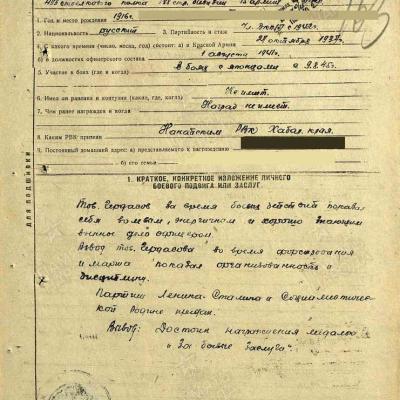 1. Год и место рождения 1916 г.
2. Национальность русский 3. Партийность и стаж
4. С какого времени (число, месяц, год) состоит: а) в Красной Армии 28 октября 1937 г.
б) в должностях офицерского состава 1 августа 1941 г.
5. Участие в боях (где и когда) в боях с японцами с 9.8.45 г.
6. Имел ли ранения и контузии (какие, где, когда) Не имеет.
7. Чем ранее награжден и когда Наград не имеет.
8. Каким РВК призван Нанайским РВК Хабар. края.
9. Постоянный домашний адрес: а) представляемого к награждению
б) его семьи
ДЛЯ ПОДШИВКИ
1. КРАТКОЕ, КОНКРЕТНОЕ ИЗЛОЖЕНИЕ ЛИЧНОГО
БОЕВОГО ПОДВИГА ИЛИ ЗАСЛУГ
Тов. Гердасов во время боевых действий показал
себя волевым, энергичным и хорошо знающим
военное дело офицером.
Взвод тов. Гердасова во время форсирования
и марша показал организованность и
дисциплину.
Партии Ленина-Сталина и Социалистичес-
кой родине предан.
Вывод: Достоин награждения медалью
"За боевые заслуги".